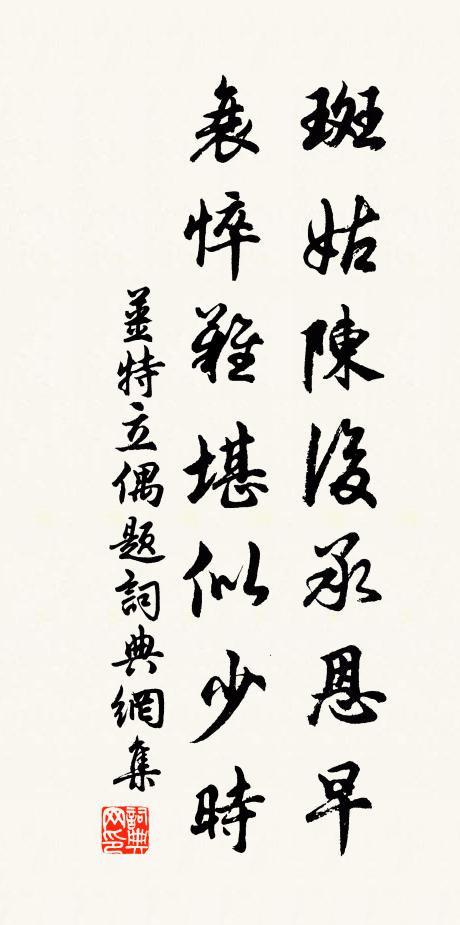 斑姑陳後承恩早
衰悴難堪似少時
薑特立偶題詞典網集
詞典网印